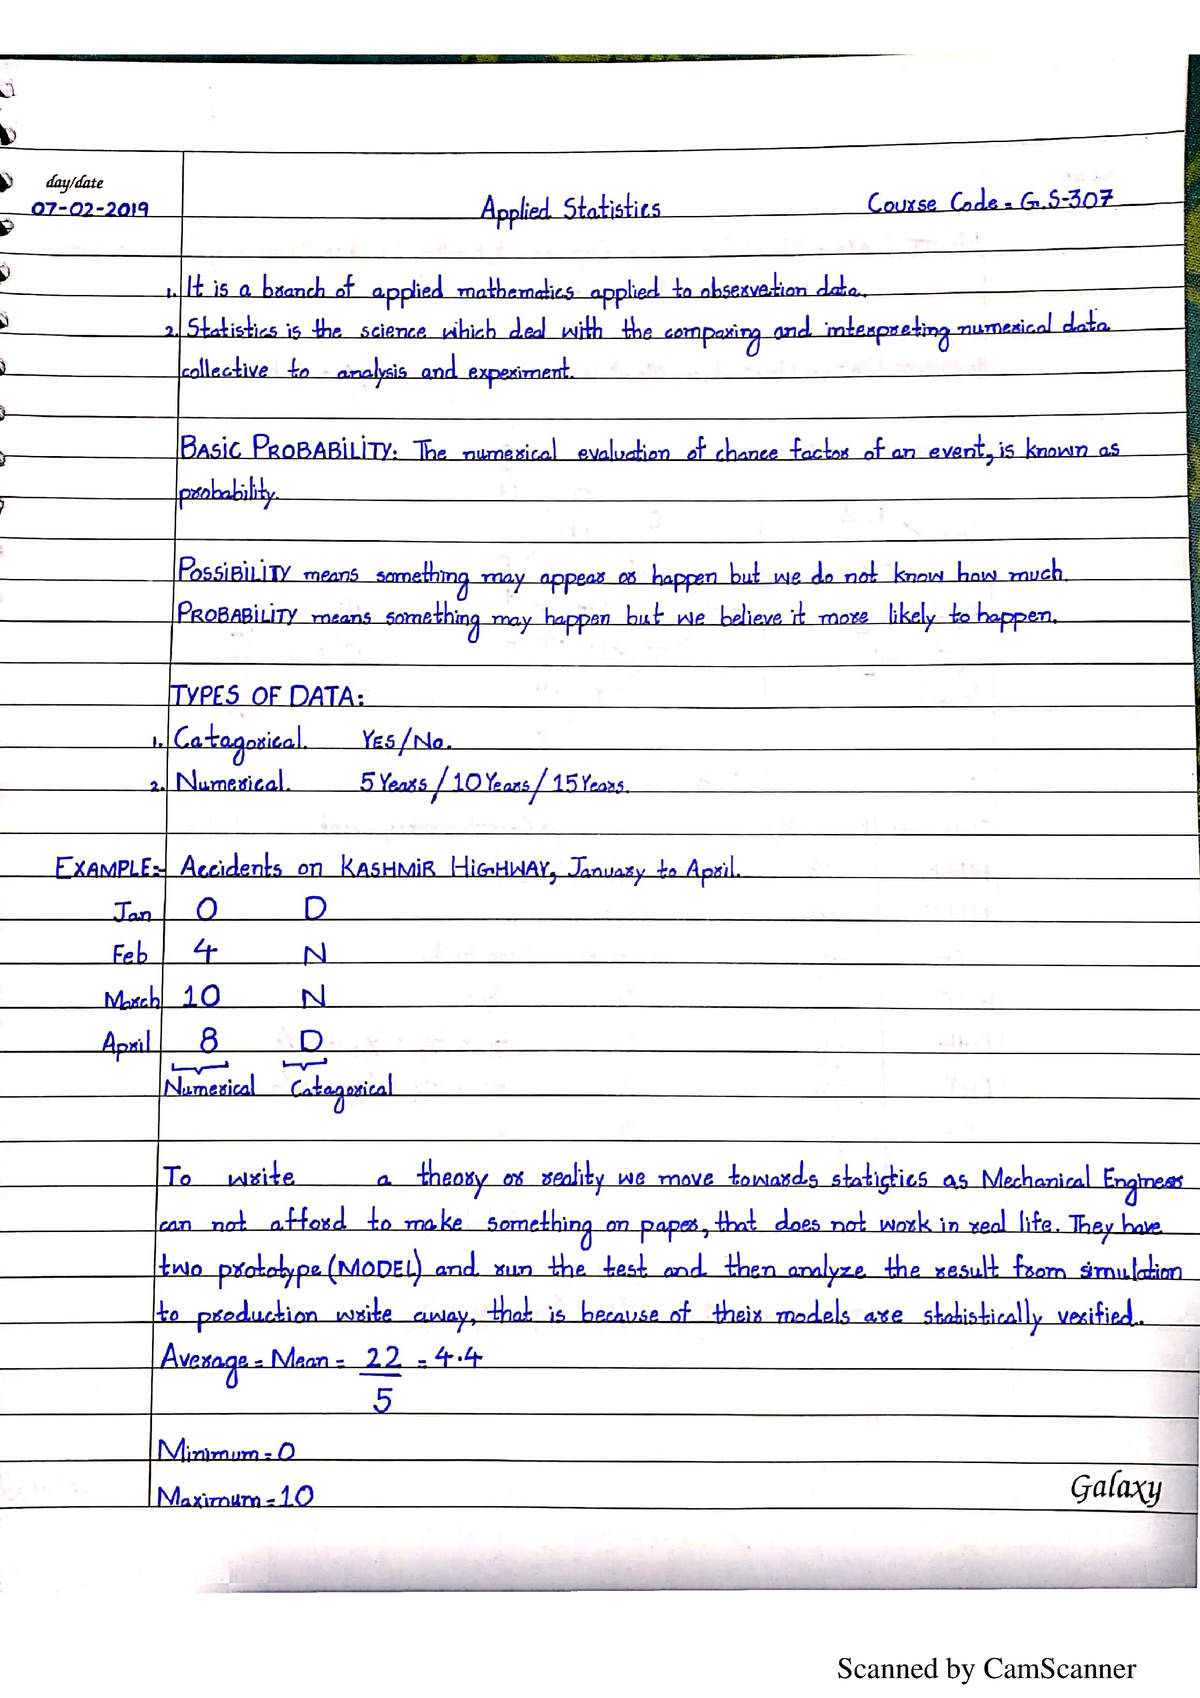 day/date
07-02-2019
Applied Statistics
Course Code = G.S-307
1. It is a branch of applied mathematics applied to obserxvation data.
2. Statistics is the science which deal with the comparing and interpreting numerical data
collective to analysis and experiment.
BASIC PROBABILITY: The numerical evaluation of chance factor of an event, is known as
probability.
POSSIBILITY means something may appear or happen but we do not know how much.
PROBABILITY means something may happen but we believe it more likely to happen.
TYPES OF DATA:
1. Catagorical. YES/No.
2. Numerical. 5 Years / 10 Years / 15 Years.
EXAMPLE:- Accidents on KASHMIR HIGHWAY, January to April.
Jan 0 D
Feb 4 N
March 10 N
April 8 D
Numerical Catagorical
To write a theory or reality we move towards statistics as Mechanical Engineers
can not afford to make something on paper, that does not work in real life. They have
two prototype (MODEL) and run the test and then analyze the result from simulation
to production write away, that is because of their models are statistically verified.
Average = Mean = 22 = 4.4
5
Minimum = 0
Maximum = 10
Galaxy
Scanned by CamScanner